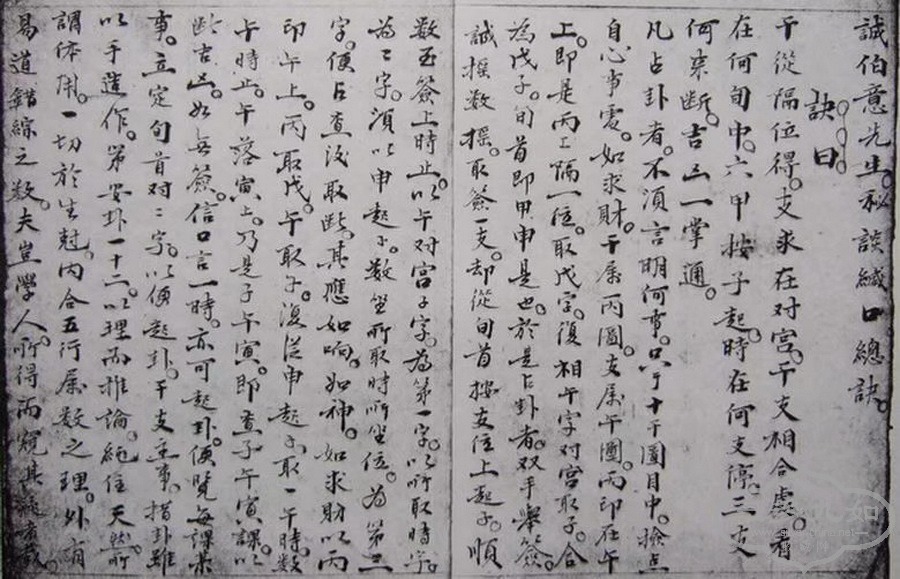 誠伯意先生秘談緘口總訣。
訣曰。
干從隔位得。支求在对宫。干支相合處。看
在何旬中。六甲按子起。時在何支停。三支
何宗断。吉凶一掌通。
凡占卦者。不須言明何事。只于十干圖目中。捡点
自心事處。如求財。干属丙圖。支属午圖。丙印在午
上。即是丙上隔一位。取戊字。復相午字对宫取子。合
為戊子。旬首即甲申是也。於是占卦者。双手舉簽。
誠摇数摇。取簽一支。却從旬首按支位上起子。順
数至簽上時止。以午对宫子字。為第一字。以所取時字。
為二字。須以申起子。数至所取時所坐位。為第三
字。便占查後取断。其應如响。如神。如求財以丙
印午上。丙取戊。午取子。復從申起子。取一午時。数
午時止。午落寅上。乃是子午寅。即查子午寅課。以
断吉凶。如無簽。信口言一時。亦可起卦。便覽每課某
事。立定旬首对二字。以便起卦。干支主事。指卦雖
以手造作。第安卦一十二。以理而推論。純任天然所
謂体用。一切於生尅。内合五行属数之理。外有
易道錯綜之数。夫豈學人所得而窺其